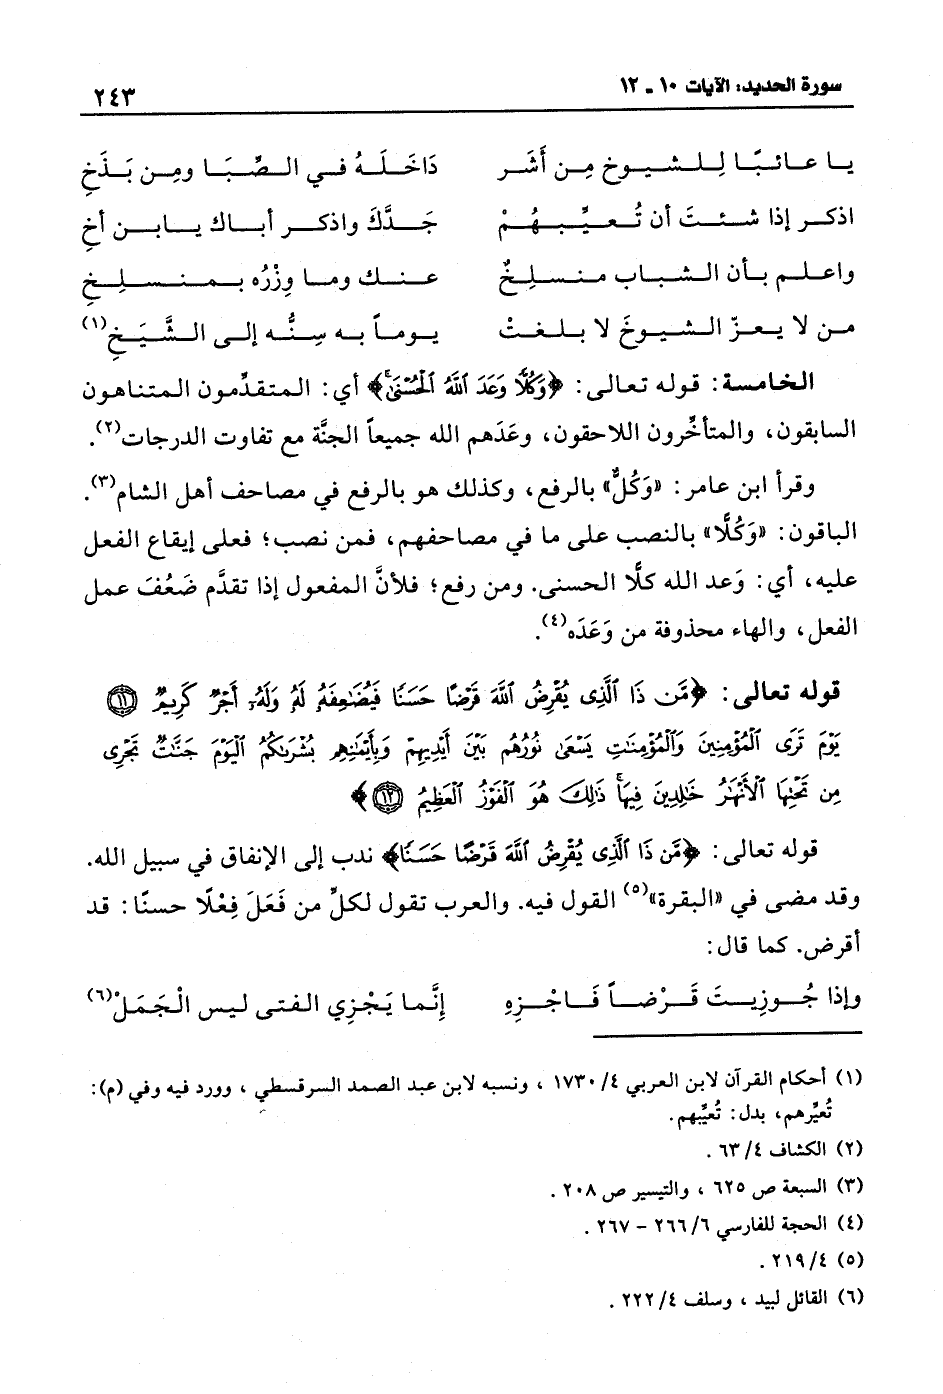 سورة الحديد: الآيات ١٠ ـ ١٢ ٢٤٣
يا عائبًا لِلشيوخ مِن أَشَر دَاخَلَهُ في الصِّبَا ومِن بَذَخِ
اذكر إذا شئتَ أن تُعيِّبهُمْ جَدَّكَ واذكر أباك يابن أخِ
واعلم بأن الشباب منسلخٌ عنك وما وِزْرُه بمنسلخِ
من لا يعزّ الشيوخَ لا بلغتْ يوماً به سِنُّه إلى الشَّيَخِ(١)
الخامسة: قوله تعالى: ﴿وَكُلًّا وَعَدَ ٱللَّهُ ٱلْحُسْنَىٰ﴾ أي: المتقدِّمون المتناهون
السابقون، والمتأخِّرون اللاحقون، وعَدَهم الله جميعاً الجنَّة مع تفاوت الدرجات(٢).
وقرأ ابن عامر: «وَكُلٌّ» بالرفع، وكذلك هو بالرفع في مصاحف أهل الشام(٣).
الباقون: «وَكُلًّا» بالنصب على ما في مصاحفهم، فمن نصب؛ فعلى إيقاع الفعل
عليه، أي: وَعد الله كلًّا الحسنى. ومن رفع؛ فلأنَّ المفعول إذا تقدَّم ضَعُفَ عمل
الفعل، والهاء محذوفة من وَعَدَه(٤).
قوله تعالى: ﴿مَّن ذَا ٱلَّذِى يُقْرِضُ ٱللَّهَ قَرْضًا حَسَنًا فَيُضَٰعِفَهُۥ لَهُۥ وَلَهُۥٓ أَجْرٌ كَرِيمٌ ١١
يَوْمَ تَرَى ٱلْمُؤْمِنِينَ وَٱلْمُؤْمِنَٰتِ يَسْعَىٰ نُورُهُم بَيْنَ أَيْدِيهِمْ وَبِأَيْمَٰنِهِم بُشْرَىٰكُمُ ٱلْيَوْمَ جَنَّٰتٌ تَجْرِى
مِن تَحْتِهَا ٱلْأَنْهَٰرُ خَٰلِدِينَ فِيهَا ۚ ذَٰلِكَ هُوَ ٱلْفَوْزُ ٱلْعَظِيمُ ١٢﴾
قوله تعالى: ﴿مَّن ذَا ٱلَّذِى يُقْرِضُ ٱللَّهَ قَرْضًا حَسَنًا﴾ ندب إلى الإنفاق في سبيل الله.
وقد مضى في «البقرة»(٥) القول فيه. والعرب تقول لكلِّ من فَعَلَ فِعْلًا حسنًا: قد
أقرض. كما قال:
وإذا جُوزِيتَ قَرْضاً فَاجْزِهِ إنَّما يَجْزِي الفتى ليس الْجَمَلْ(٦)
(١) أحكام القرآن لابن العربي ٤/ ١٧٣٠ ، ونسبه لابن عبد الصمد السرقسطي ، وورد فيه وفي (م):
تُعيِّرهم، بدل: تُعيِّبهم.
(٢) الكشاف ٤/ ٦٣ .
(٣) السبعة ص ٦٢٥ ، والتيسير ص ٢٠٨ .
(٤) الحجة للفارسي ٦/ ٢٦٦ - ٢٦٧ .
(٥) ٤/ ٢١٩ .
(٦) القائل لبيد ، وسلف ٤/ ٢٢٢ .